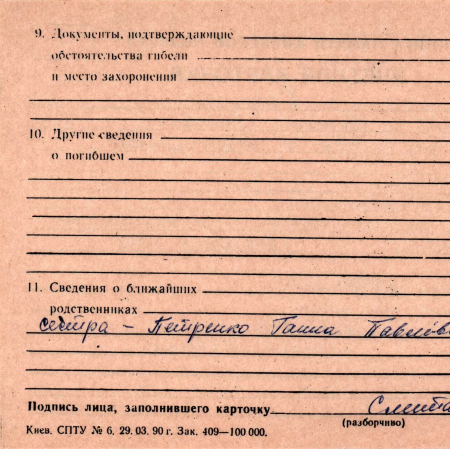 9. Документы, подтверждающие
обстоятельства гибели
и место захоронения
10. Другие сведения
о погибшем
11. Сведения о ближайших
родственниках
сестра – Петренко Ганна Павлов
Подпись лица, заполнившего карточку
(разборчиво)
Киев. СПТУ № 6. 29. 03. 90 г. Зак. 409—100 000.